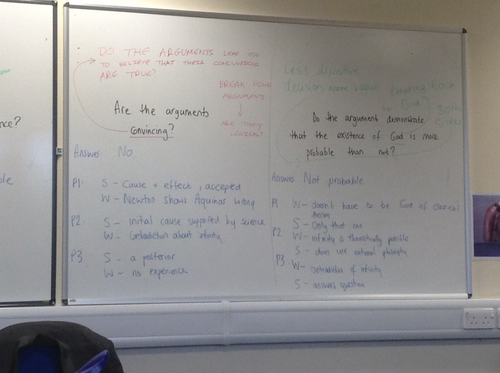 DO THE ARGUMENTS LEAD YOU
TO BELIEVE THAT THEIR CONCLUSIONS
ARE TRUE?
BREAK DOWN
ARGUMENTS
ARE THEY
LOGICAL?
Are the arguments
convincing?
Answer: No
P1: S - Cause + effect, accepted
W - Newton shows Aquinas wrong
P2: S - initial cause supported by science
W - Contradiction about infinity
P3: S - a posteriori
W - no experience
Less
decisive
Do the argument demonstrate
that the existence of God is more
probable than not?
Answer Not probable
P1 W - doesn't have to be God of classical
theism
S - Only that one
P2 W - infinity is theoretically possible
S - does use natural philosophy
P3 W - contradiction of infinity
S - answers question
nce?